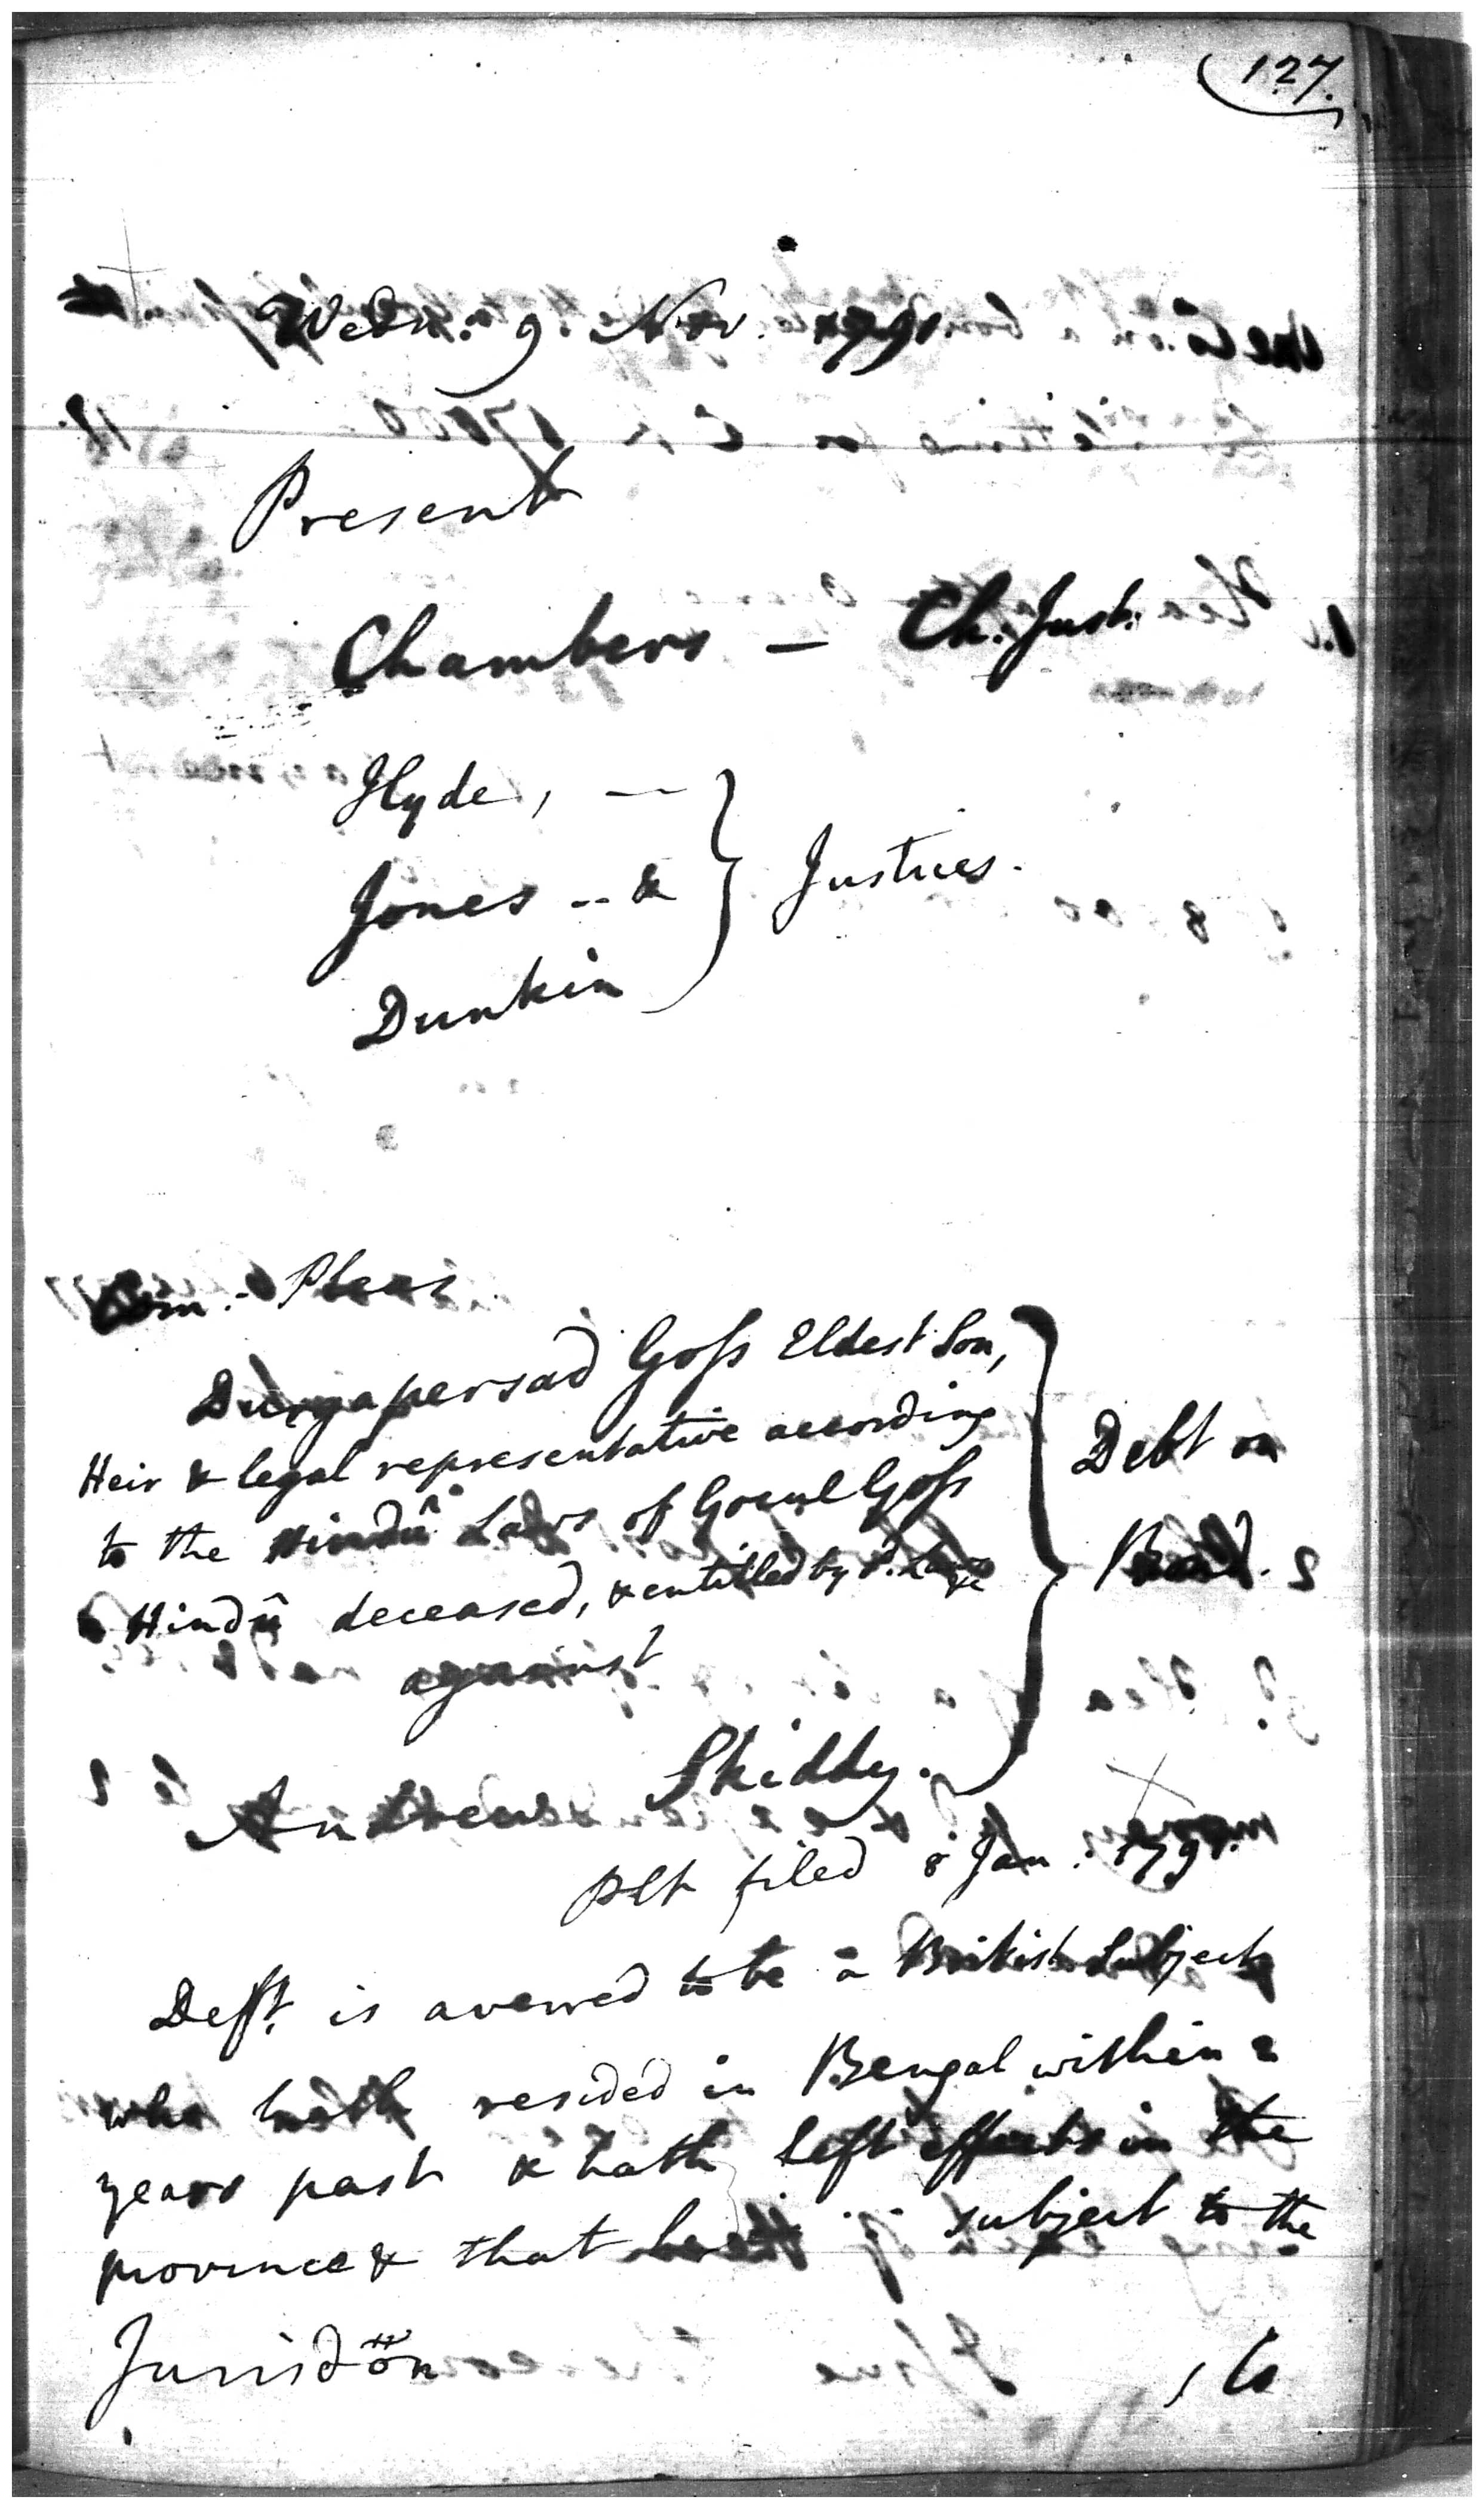 127.
Wedn: 9. Nov. 1791.
Present
Chambers — Ch. Just:
Hyde, —
Jones -- & } Justices.
Dunkin
Com: Pleas
Durgapersad Goss Eldest Son,
Heir & legal representative according
to the Hindû Laws of Gocul Goss
a Hindû deceased, & entitled by
against
Andrew Skiddy.
Debt on
Bond.
plt filed 8 Jan. 1791.
Deft. is averred to be a British Subject
who hath resided in Bengal within 2
years past & hath left effects in the
province & that subject to the
Jurisdön